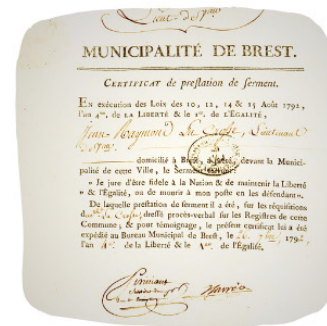 Lieut. de
MUNICIPALITÉ DE BREST.
CERTIFICAT de prestation de serment.
EN exécution des Loix des 10, 12, 14 & 15 Août 1792,
l'an 4me. de LA LIBERTÉ & le 1er. de L'ÉGALITÉ,
Jean Raymond La Lieutenant
domicilié à Brest, a prêté, devant la Munici-
palité de cette Ville, le Serment
» Je jure d'être fidele à la Nation & de maintenir la Liberté
» & l'Égalité, ou de mourir à mon poste en les défendant».
De laquelle prestation de serment il a été, sur les réquisitions
dressé procès-verbal sur les Registres de cette
Commune; & pour témoignage, le présent certificat lui a été
expédié au Bureau Municipal de Brest, le 1792
l'an 4me. de la Liberté & le 1er. de l'Égalité.